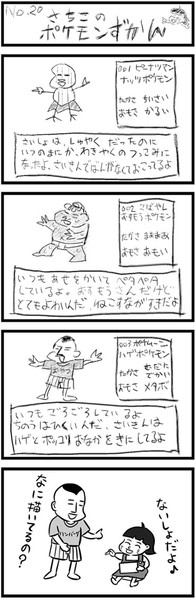 No.20
さちこの
ポケモンずかん
001 ピーナツマン
ナッツポケモン
たかさ ちいさい
おもさ かるい
さいしょは、しゅやくだったのに
いつのまにか、わきやくのフつにみに
なったよ。さいきんでばんがなくておこってるよ
002 こばやし
おすもうポケモン
たかさ まあまあ
おもさ おもい
いつもあせをかいてペタペタ
しているよ。おすもうさんだけど
とてもよわいんだ。ねこすながすきだよ
003 ポケムーン
ハゲポケモン
たかさ むだにでかい
おもさ メタボ
おやつ
いつもごろごろしているよ
ちのうはひくいんだ。さいきんは
ハゲとポッコリおなかをきにしてるよ
ないしょだよ♪
ハンバーグ
なに描いてるの?